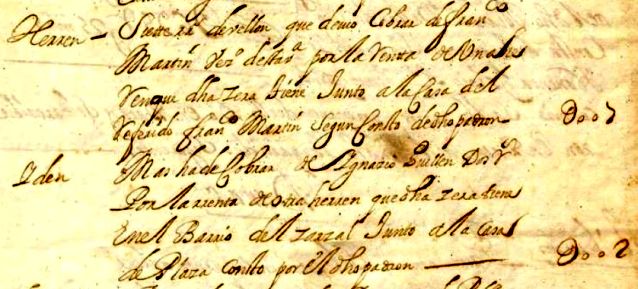 Herren - Siette rrs de vellon que deuio Cobrar de franco
Martin Vezo desta Va por la Renta de Una he
rren que dha zera tiene Junto a la Casa del
referido franco Martin segun Consto de dho padron D007
Yden Mas ha de Cobrar de Ygnazio Guillen Dos Rs
Por la rrenta de otra herren que dha zera tiene
En el Barrio del zarzal Junto a la Casa
de Plaza Consto por El dho padron D002